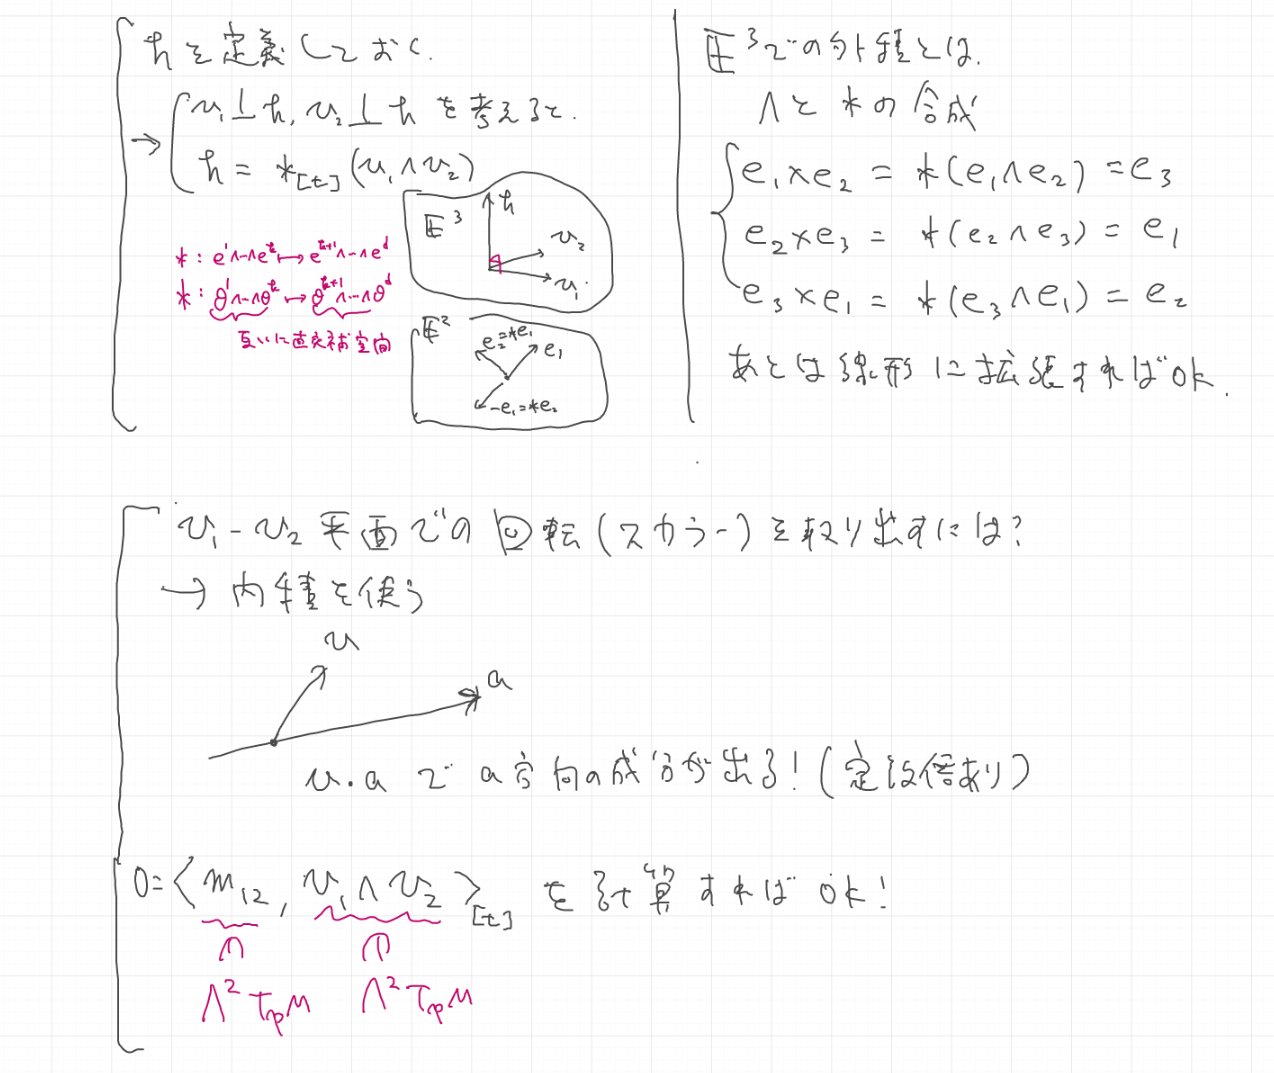 hを定義しておく.
→ v₁⊥h, v₂⊥h を考えると.
h = *[t](v₁∧v₂)
*: e¹∧--∧eᵏ ↦ eᵏ⁺¹∧--∧eᵈ
*: θ¹∧--∧θᵏ ↦ θᵏ⁺¹∧--∧θᵈ
互いに直交補空間
E³
h
v₂
v₁
E²
e₂=*e₁
e₁
-e₁=*e₂
E³での外積とは.
∧と*の合成
e₁×e₂ = *(e₁∧e₂) = e₃
e₂×e₃ = *(e₂∧e₃) = e₁
e₃×e₁ = *(e₃∧e₁) = e₂
あとは線形に拡張すればok.
v₁-v₂平面での回転(スカラー)を取り出すには?
→ 内積を使う
v
a
v・a で a方向の成分が出る!(定数倍あり)
0=⟨m₁₂, v₁∧v₂⟩[t] を計算すれば ok!
∩ ∩
Λ²TpM Λ²TpM